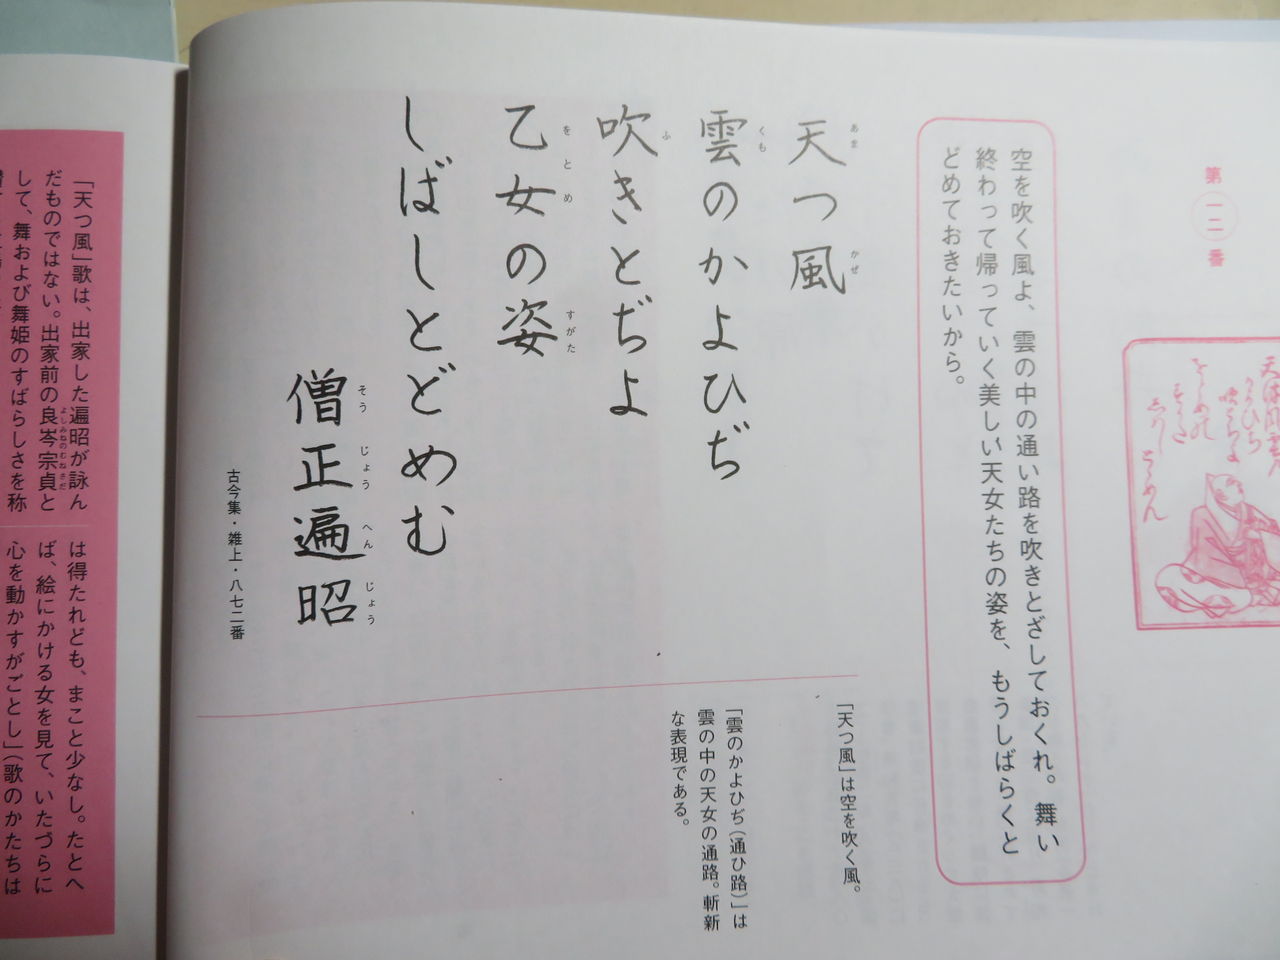 第一二番
空を吹く風よ、雲の中の通い路を吹きとざしておくれ。舞い
終わって帰っていく美しい天女たちの姿を、もうしばらくと
どめておきたいから。
天つ風
あま かぜ
雲のかよひぢ
くも
吹きとぢよ
ふ
乙女の姿
をとめ すがた
しばしとどめむ
僧正遍昭
そう じょう へん じょう
古今集・雑上・八七二番
「天つ風」は空を吹く風。
「雲のかよひぢ（通ひ路）」は
雲の中の天女の通路。斬新
な表現である。
「天つ風」歌は、出家した遍昭が詠ん
だものではない。出家前の良岑宗貞と
よしみねのむねさだ
して、舞および舞姫のすばらしさを称
は得たれども、まこと少なし。たとへ
ば、絵にかける女を見て、いたづらに
心を動かすがごとし」（歌のかたちは